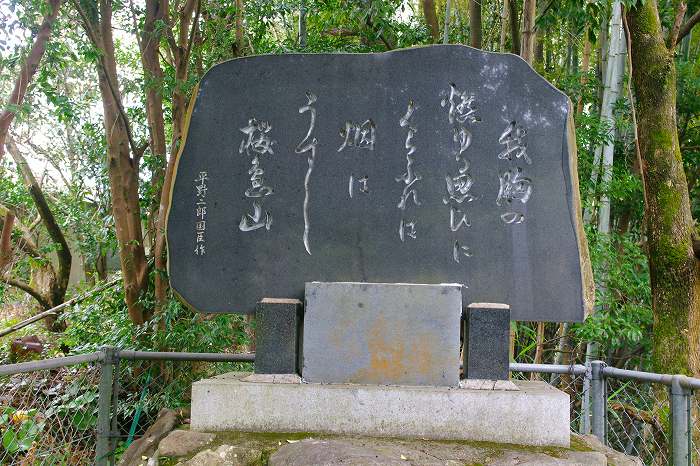 我胸の
燃ゆる思ひに
くらふれは
烟は
うすし
櫻島山
平野二郎国臣作